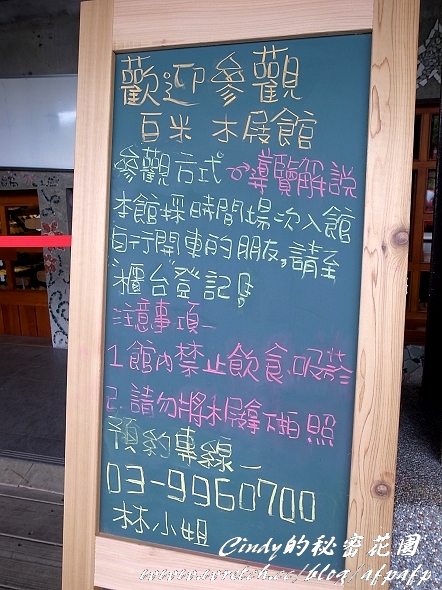 歡迎參觀
百米 木屐館
參觀方式→導覽解說
本館採時間場次入館
自行開車的朋友,請至
櫃台"登記"!
注意事項—
1.館內禁止飲食.吸菸
2.請勿將木屐拿下拍照
預約專線—
03-9960700
林小姐
Cindy的秘密花園
www.wretch.cc/blog/afpafp